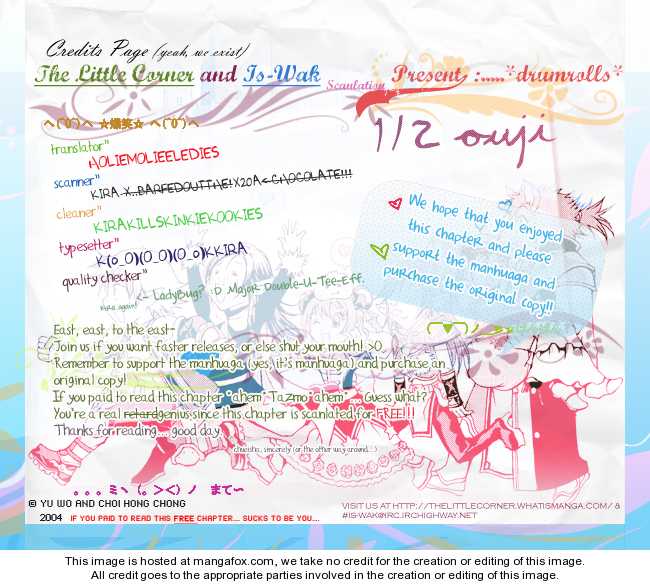 Credits Page (yeah, we exist)
The Little Corner and Is-Wak Scanlation Present, :.....*drumrolls*
ヘ(^0^)ヘ ☆爆笑☆ ヘ(^0^)ヘ
1/2 ouji
translator"
HOLIEMOLIEELEDIES
scanner"
KIRA X..BARFEDOUTTHE!X20A<CHOCOLATE!!!
cleaner"
KIRAKILLSKINKIEKOOKIES
typesetter"
K(o_O)(O_O)(O_o)KKIRA
quality checker"
<- LadyBug? :D Major Double-U-Tee-Eff.
kira again!
We hope that you enjoyed
this chapter and please
support the manhuaga and
purchase the original copy!!
East, east, to the east~
Join us if you want faster releases, or else shut your mouth! >0
Remember to support the manhuaga (yes, it's manhuaga) and purchase an
original copy!
If you paid to read this chapter *ahem* Tazmo *ahem*... Guess what?
You're a real retard genius since this chapter is scanlated for FREE!!!
Thanks for reading... good day.
chuoishio, sincerely (or the other way around...)
。。。ミヽ(。><)ノ まて~
© YU WO AND CHOI HONG CHONG
2004 IF YOU PAID TO READ THIS FREE CHAPTER... SUCKS TO BE YOU...
VISIT US AT HTTP://THELITTLECORNER.WHATISMANGA.COM/ &
#IS-WAK@IRC.IRCHIGHWAY.NET
This image is hosted at mangafox.com, we take no credit for the creation or editing of this image.
All credit goes to the appropriate parties involved in the creation or editing of this image.